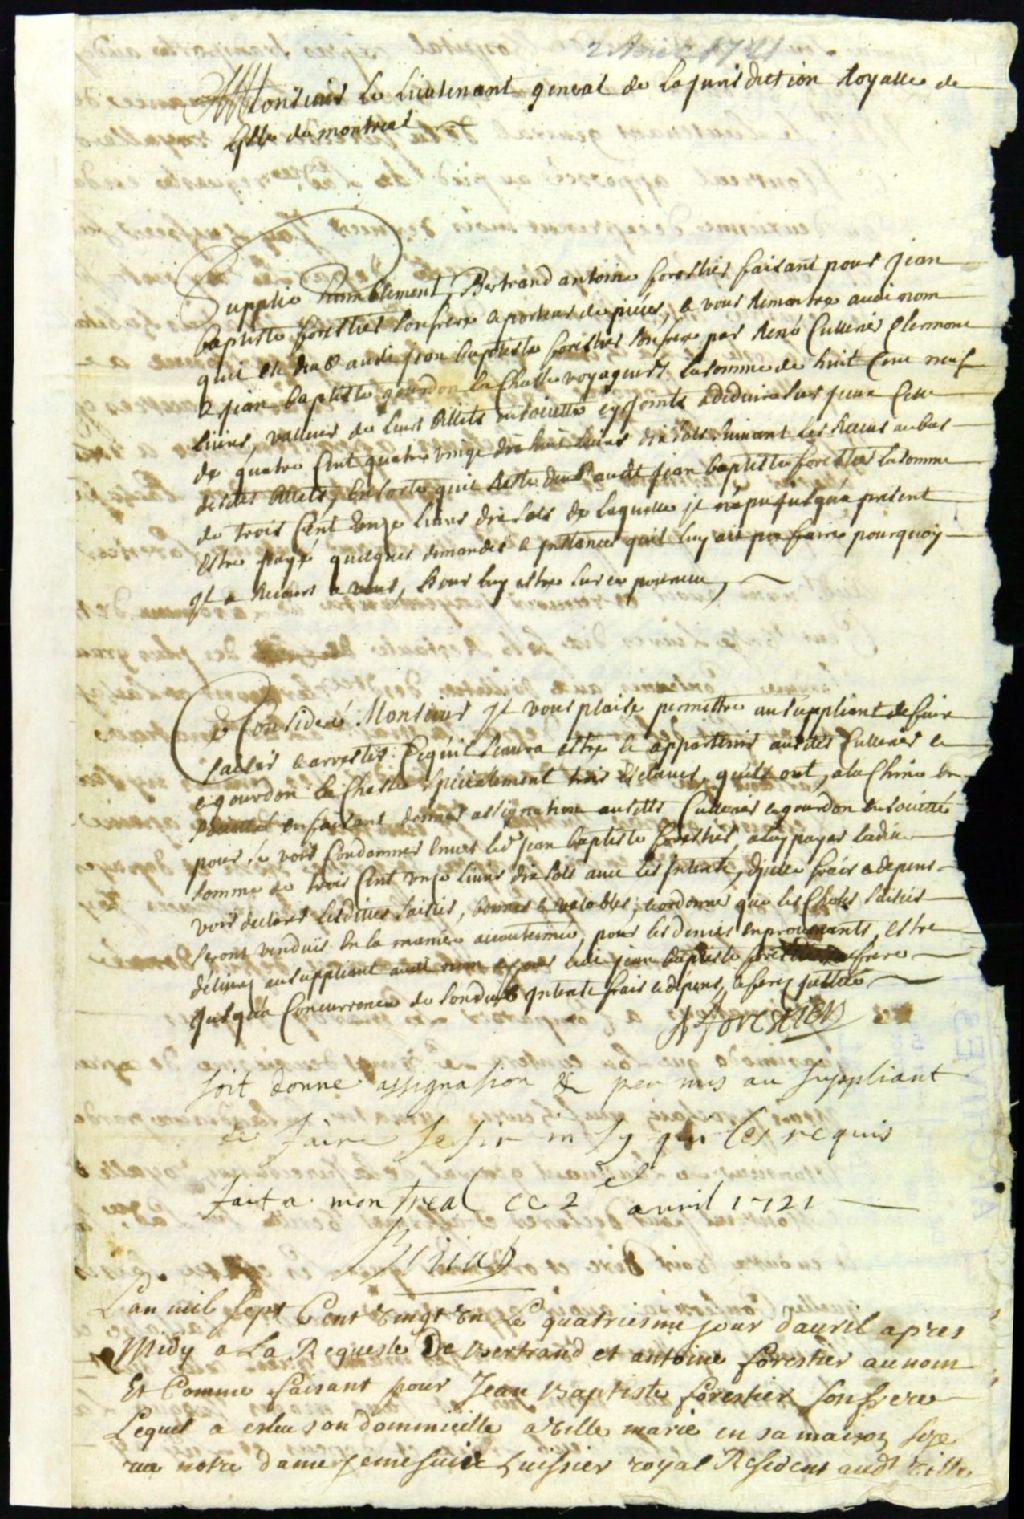 2 Avril 1721
A Monsieur Le Lieutenant general de la jurisdiction Royalle de
L'isle de montreal
Supplie humblement Bertrand antoine forestier faisant pour jean
baptiste forestier son frere & porteur de pieces, & vous remontre audi nom
qu'il est deub audit jean baptiste forestier son frere par René Cullerier
& jean baptiste gourdon la Chasse voyageurs la somme de huit Cent neuf
livres, valleur de leurs billets en societté cy joints a deduire sur jceux Celle
de quatre Cent quatre vingt dix huit livres dix sols suivant les Receus au bas
desdits billets, En sorte qu'il Reste deub audit jean baptiste forestier la somme
de trois Cent onze livres dix sols de laquelle jl n'a pu jusqu'a present
estre payé quelques demandes & jnstances quil luy ait pu faire pourquoy
jl a Recours a vous, Pour luy estre sur ce pourveu,
Ce Consideré Monsieur jl vous plaise permettre au suppliant de faire
saisir & arrester Ce qu'il scaura estre & appartenir ausdits Cullerier &
& gourdon la Chasse specialement trois Esclaves qu'ils ont, a la Chine
en faisant donner assignation ausdits Cullerier & gourdon en societté
pour se voir Condamner envers led jean baptiste forestier, a luy payer ladite
somme de trois Cent onze livres dix sols avec les jnterests, frais & depens
voir declarer lesdittes saisies, bonnes & valables, & ordonner que les Choses saisies
seront venduës en la maniere accoutumée, pour les deniers en provenants, estre
delivrez au suppliant audit nom jean baptiste forestier son frere
jusqu'a Concurrence de son deub jnterests frais & depens, & ferez justice
A Forestier
soit donné assignation & permis au suppliant
de faire sesir insy qui les requis
fait a montreal ce 2e avril 1721
L'an mil sept Cent vingt un Le quatriesme jour d'avril apres
Midy a La Requeste De Bertrand et antoine forestier au nom
Et Comme faisant pour Jean Baptiste forestier son frere
Lequel a esleu son dommicille a ville marie en sa maison size
rue notre dame huissier royal Resident audt ville